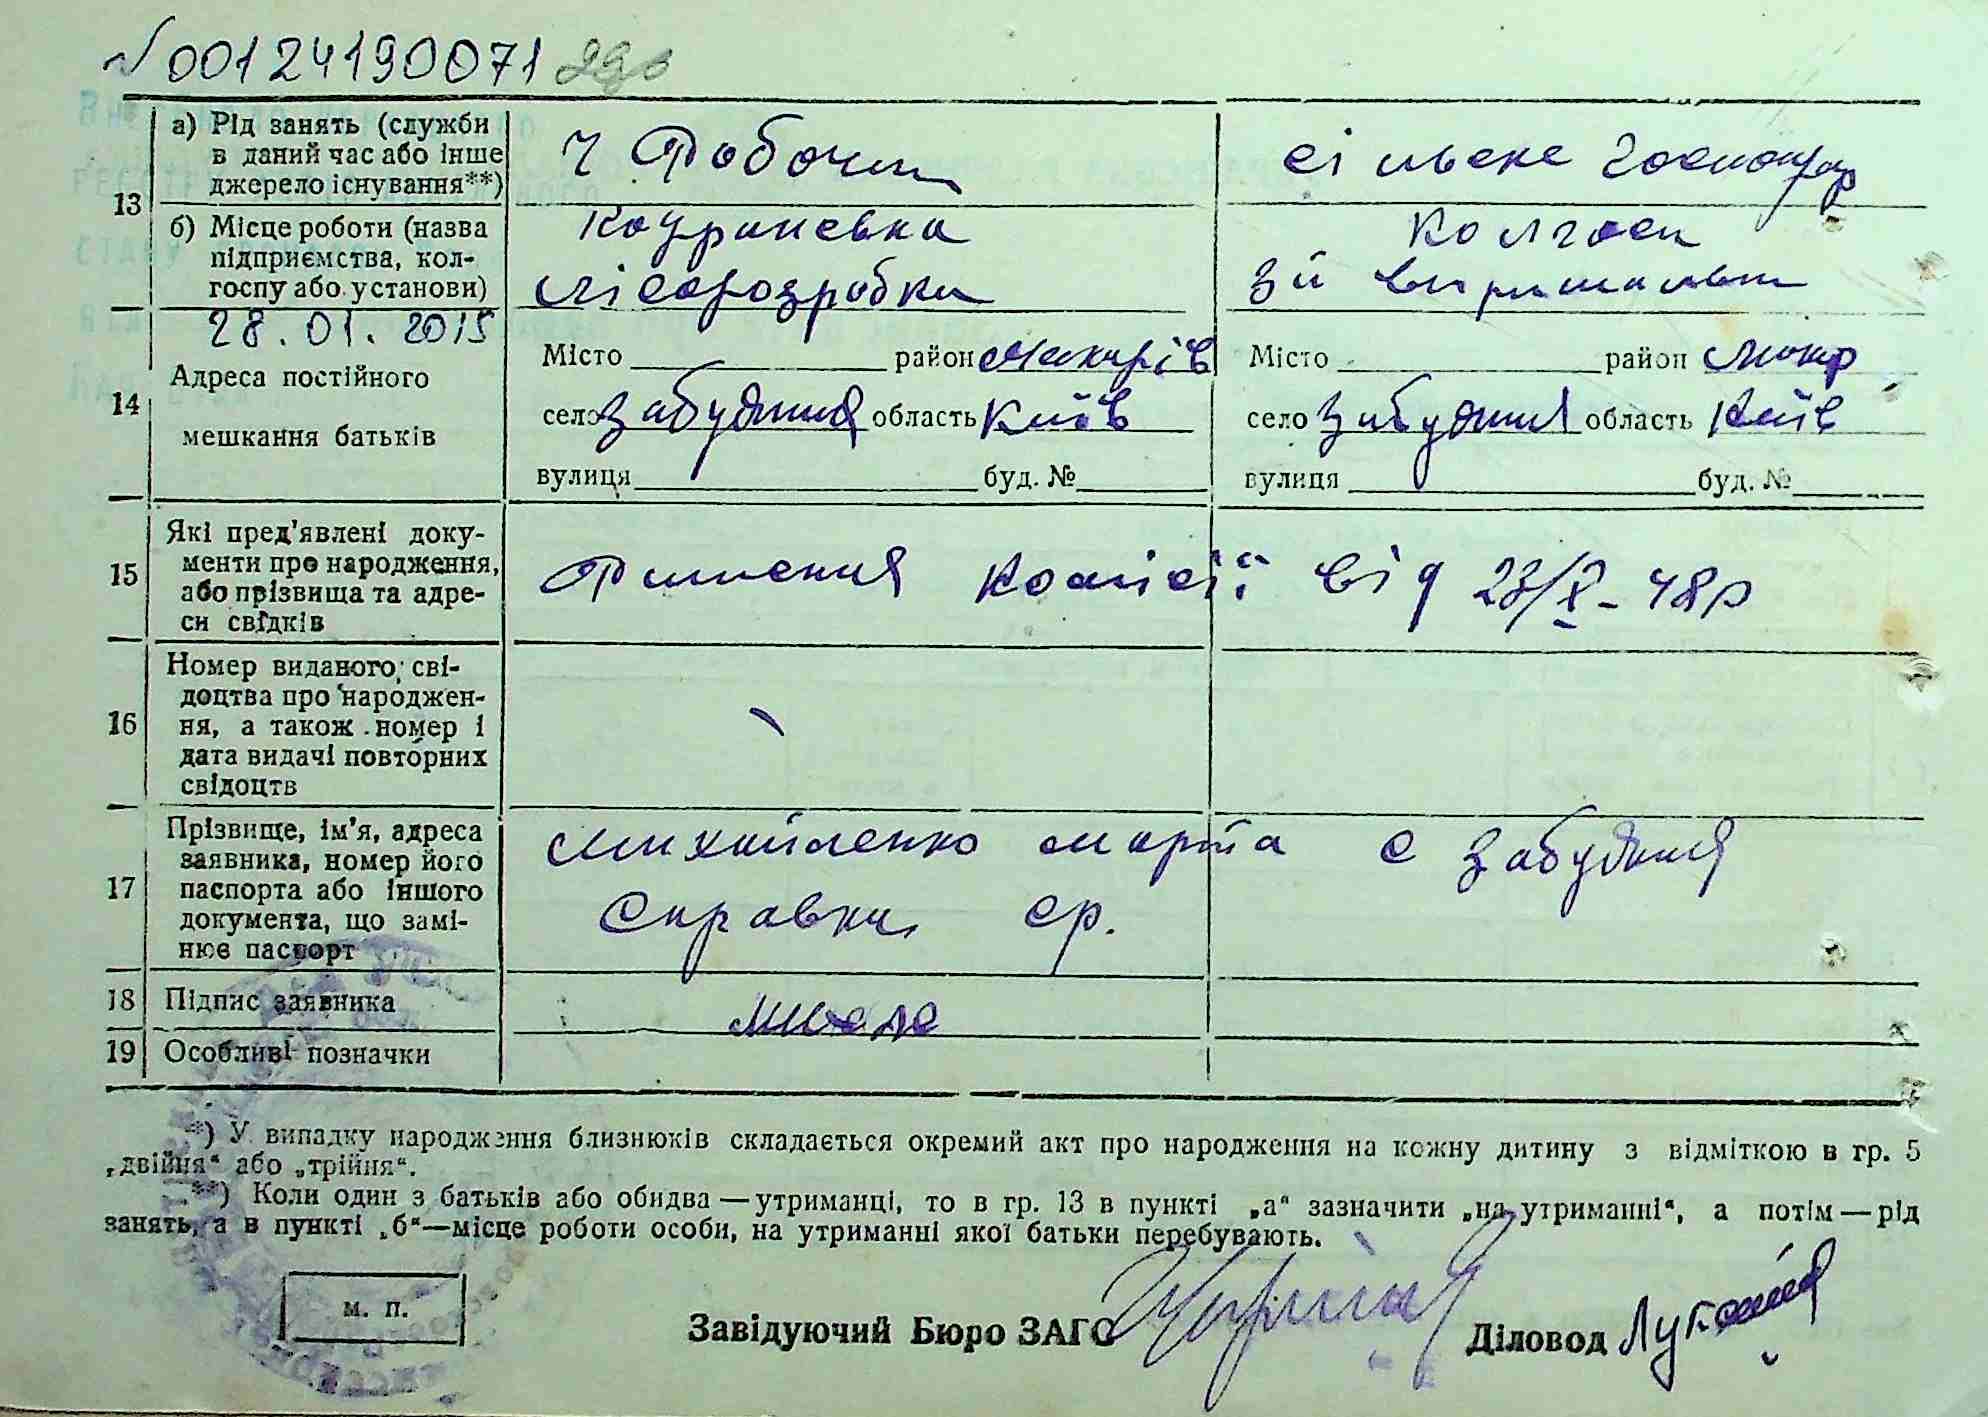 №00124190071
13
а) Рід занять (служби
в даний час або інше
джерело існування**)
Робочий
сільське господар
б) Місце роботи (назва
підприємства, кол-
госпу або установи)
лісорозробки
Колгосп
28.01.2015
14
Адреса постійного
мешкання батьків
Місто район Макарів
село Забудяння область Київ
вулиця буд. №
Місто район Макар
село Забудяння область Київ
вулиця буд. №
15
Які пред'явлені доку-
менти про народження,
або прізвища та адре-
си свідків
Ришення комісії від 23/X-48р
16
Номер виданого сві-
доцтва про народжен-
ня, а також номер і
дата видачі повторних
свідоцтв
17
Прізвище, ім'я, адреса
заявника, номер його
паспорта або іншого
документа, що замі-
нює паспорт
Михайленко Марта с Забудяння
Справка ср.
18 Підпис заявника
19 Особливі позначки
*) У випадку народження близнюків складається окремий акт про народження на кожну дитину з відміткою в гр. 5
„двійня“ або „трійня“.
**) Коли один з батьків або обидва — утриманці, то в гр. 13 в пункті „а“ зазначити „на утриманні“, а потім — рід
занять, а в пункті „б“ — місце роботи особи, на утриманні якої батьки перебувають.
м. п.
Завідуючий Бюро ЗАГС
Діловод